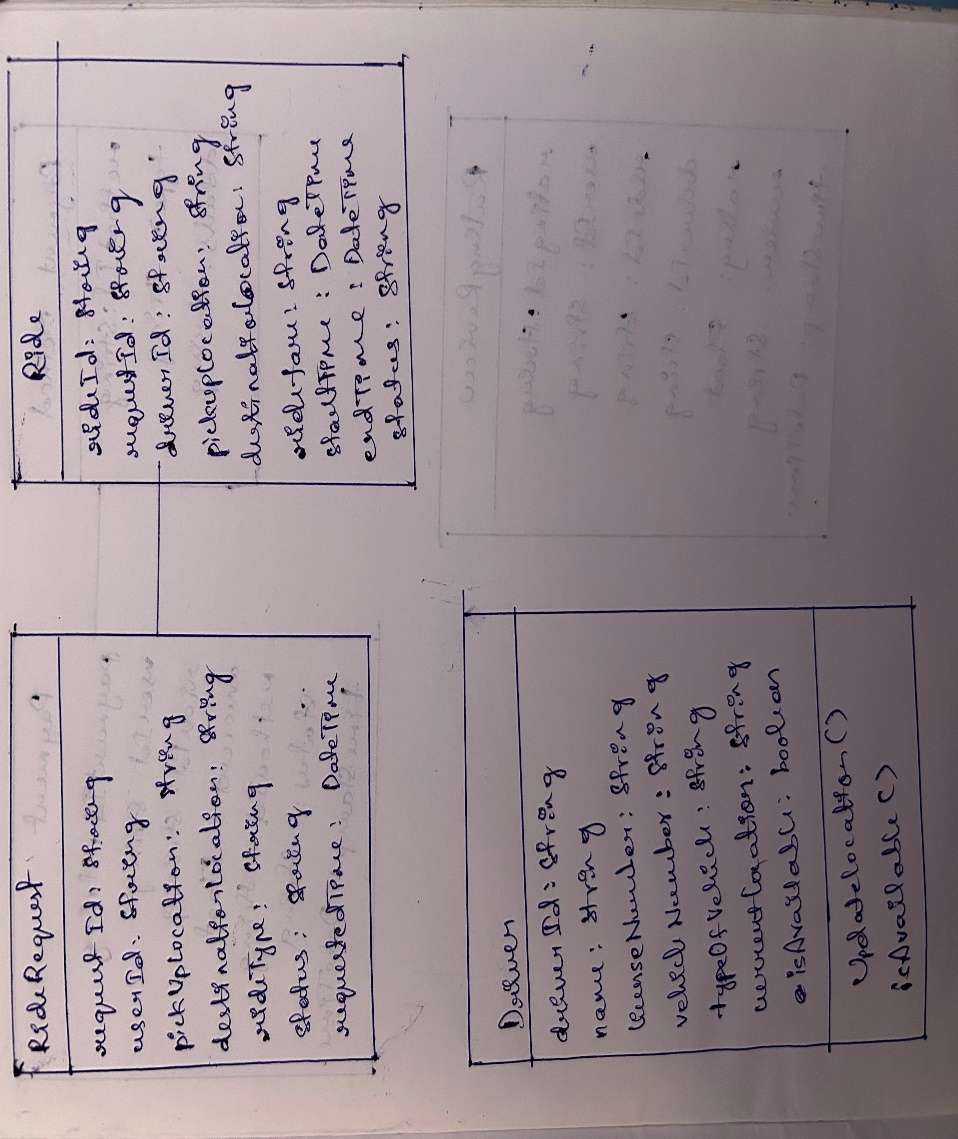 RideRequest
request Id: String
userId: String
pickUplocation: String
destinationlocation: String
rideType: String
Status: String
requestedTime: DateTime
Ride
rideId: String
requestId: String
driverId: String
pickuplocation: String
destinationlocation: String
ridefare: String
startTime: DateTime
endTime: DateTime
status: String
Driver
driverId: String
name: String
licenseNumber: String
vehicleNumber: String
typeOfVehicle: String
currentlocation: String
isAvailable: boolean
Updatelocation()
isAvailable()